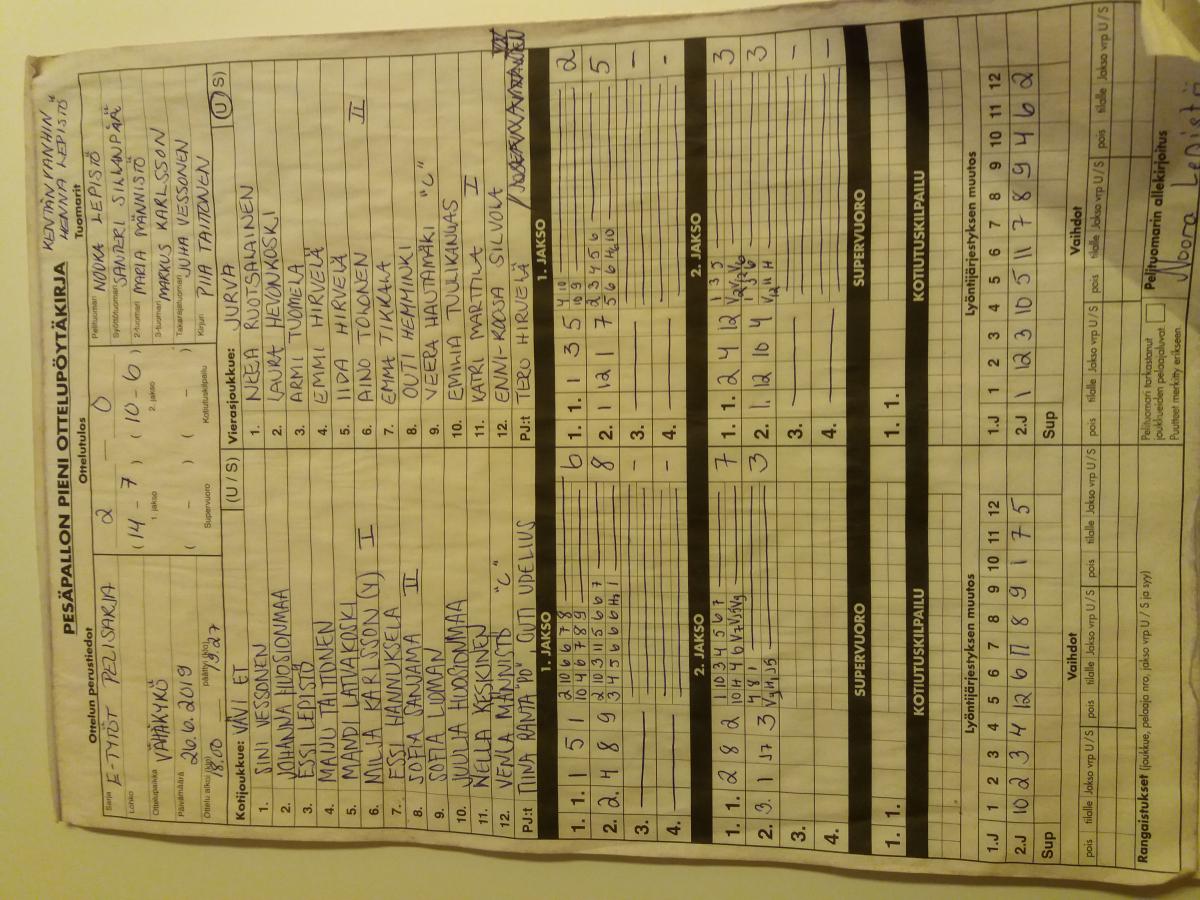 PESÄPALLON PIENI OTTELUPÖYTÄKIRJA
KENTÄN VANHIN
HENNA LEPISTÖ
Ottelun perustiedot
Sarja E-TYTÖT PELISARJA
Lohko
Ottelupaikka VÄHÄKYRÖ
Päivämäärä 26.6.2019
Ottelu alkoi (klo) 18.00 päättyi (klo) 19.27
Ottelutulos
2 0
(14 - 7) (10 - 6)
1. jakso 2. jakso
( - ) ( - )
Supervuoro Kotiutuskilpailu
Tuomarit
Pelituomari LEPISTÖ
Syöttötuomari SANTERI SILLANPÄÄ
2-tuomari MARIA MÄNNISTÖ
3-tuomari MARKUS KARLSSON
Takarajatuomari JUHA VESSONEN
Kirjuri PIIA TAITTONEN
Kotijoukkue: VÄVI ET (U / S)
1. SINI VESSONEN
2. JOHANNA HUOSIONMAA
3. ESSI LEPISTÖ
4. MAIJU TAITTONEN
5. MANDI LATVAKOSKI
6. MILJA KARLSSON (V) I
7. ESSI HANNUKSELA
8. SOFIA SANJAMA II
9. SOFIA LUOMAN
10. JUULIA HUOSIONMAA
11. NELLA KESKINEN
12. VENLA MÄNNISTÖ "C"
PJ:t TIINA RANTA-HO OUTI UPELIUS
Vierasjoukkue: JURVA (U / S)
1. NEEA RUOTSALAINEN
2. LAURA HEVONKOSKI
3. ARMI TUOMELA
4. EMMI HIRVELÄ
5. IIDA HIRVELÄ
6. AINO TOKONEN II
7. EMMA TIKKALA
8. OUTI HEMMINKI
9. VEERA HAUTAMÄKI "C"
10. EMILIA TUULIKANGAS
11. KATRI MARTTILA I
12. ENNI-ROOSA SILVOLA
PJ:t TERO HIRVELÄ
1. JAKSO 1. JAKSO
1. 1. 1 5 1 2 10 6 6 7 8 6
10 4 6 7 8 9
2. 2. 4 8 9 2 10 3 11 5 6 6 7 8
3 4 5 6 6 6 H3 1
3. -
4. -
1. 1. 1 3 5 4 10 2
10 9
2. 1 12 1 7 2 3 4 5 6 5
5 6 6 H6 10
3. -
4. -
2. JAKSO 2. JAKSO
1. 1. 2 8 2 1 10 3 4 5 6 7 7
10 14 4 6 V7 V5 V9
2. 3. 1 17 3 4 8 1 3
3.
4.
1. 1. 2 4 12 1 3 5 3
2. 1. 12 10 4 3
V12 H H
3. -
4. -
SUPERVUORO SUPERVUORO
1. 1. 1. 1.
KOTIUTUSKILPAILU KOTIUTUSKILPAILU
Lyöntijärjestyksen muutos Lyöntijärjestyksen muutos
1.J 1 2 3 4 5 6 7 8 9 10 11 12
2.J 10 2 3 4 12 6 11 8 9 1 7 5
Sup
1.J 1 2 3 4 5 6 7 8 9 10 11 12
2.J 1 12 3 10 5 11 7 8 9 4 6 2
Sup
Vaihdot Vaihdot
pois tilalle Jakso vrp U / S pois tilalle Jakso vrp U / S pois tilalle Jakso vrp U / S
pois tilalle Jakso vrp U / S pois tilalle Jakso vrp U / S pois tilalle Jakso vrp U / S
Rangaistukset (joukkue, pelaaja nro, jakso vrp U / S ja syy)
Pelituomari tarkastanut
joukkueiden pelaajaluvat
Puutteet merkitty erikseen
Pelituomarin allekirjoitus
Noora Lepistö